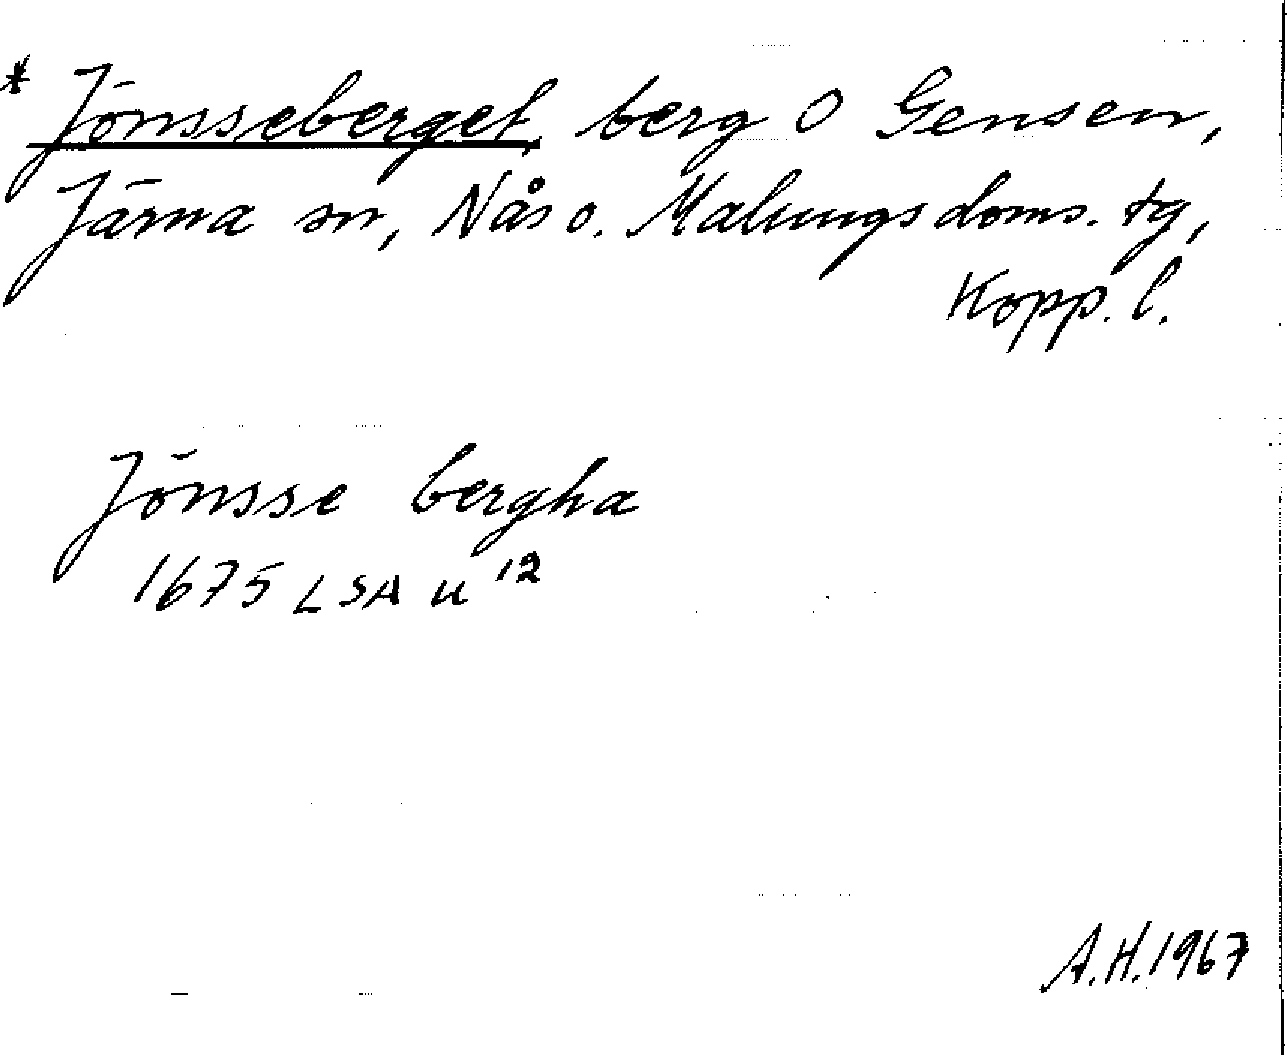 * Jönsseberget, berg O Gensen,
Järna sn, Nås o. Malungs doms. tg,
Kopp. l.
Jönsse bergha
1675 LSA U 12
A.H. 1967